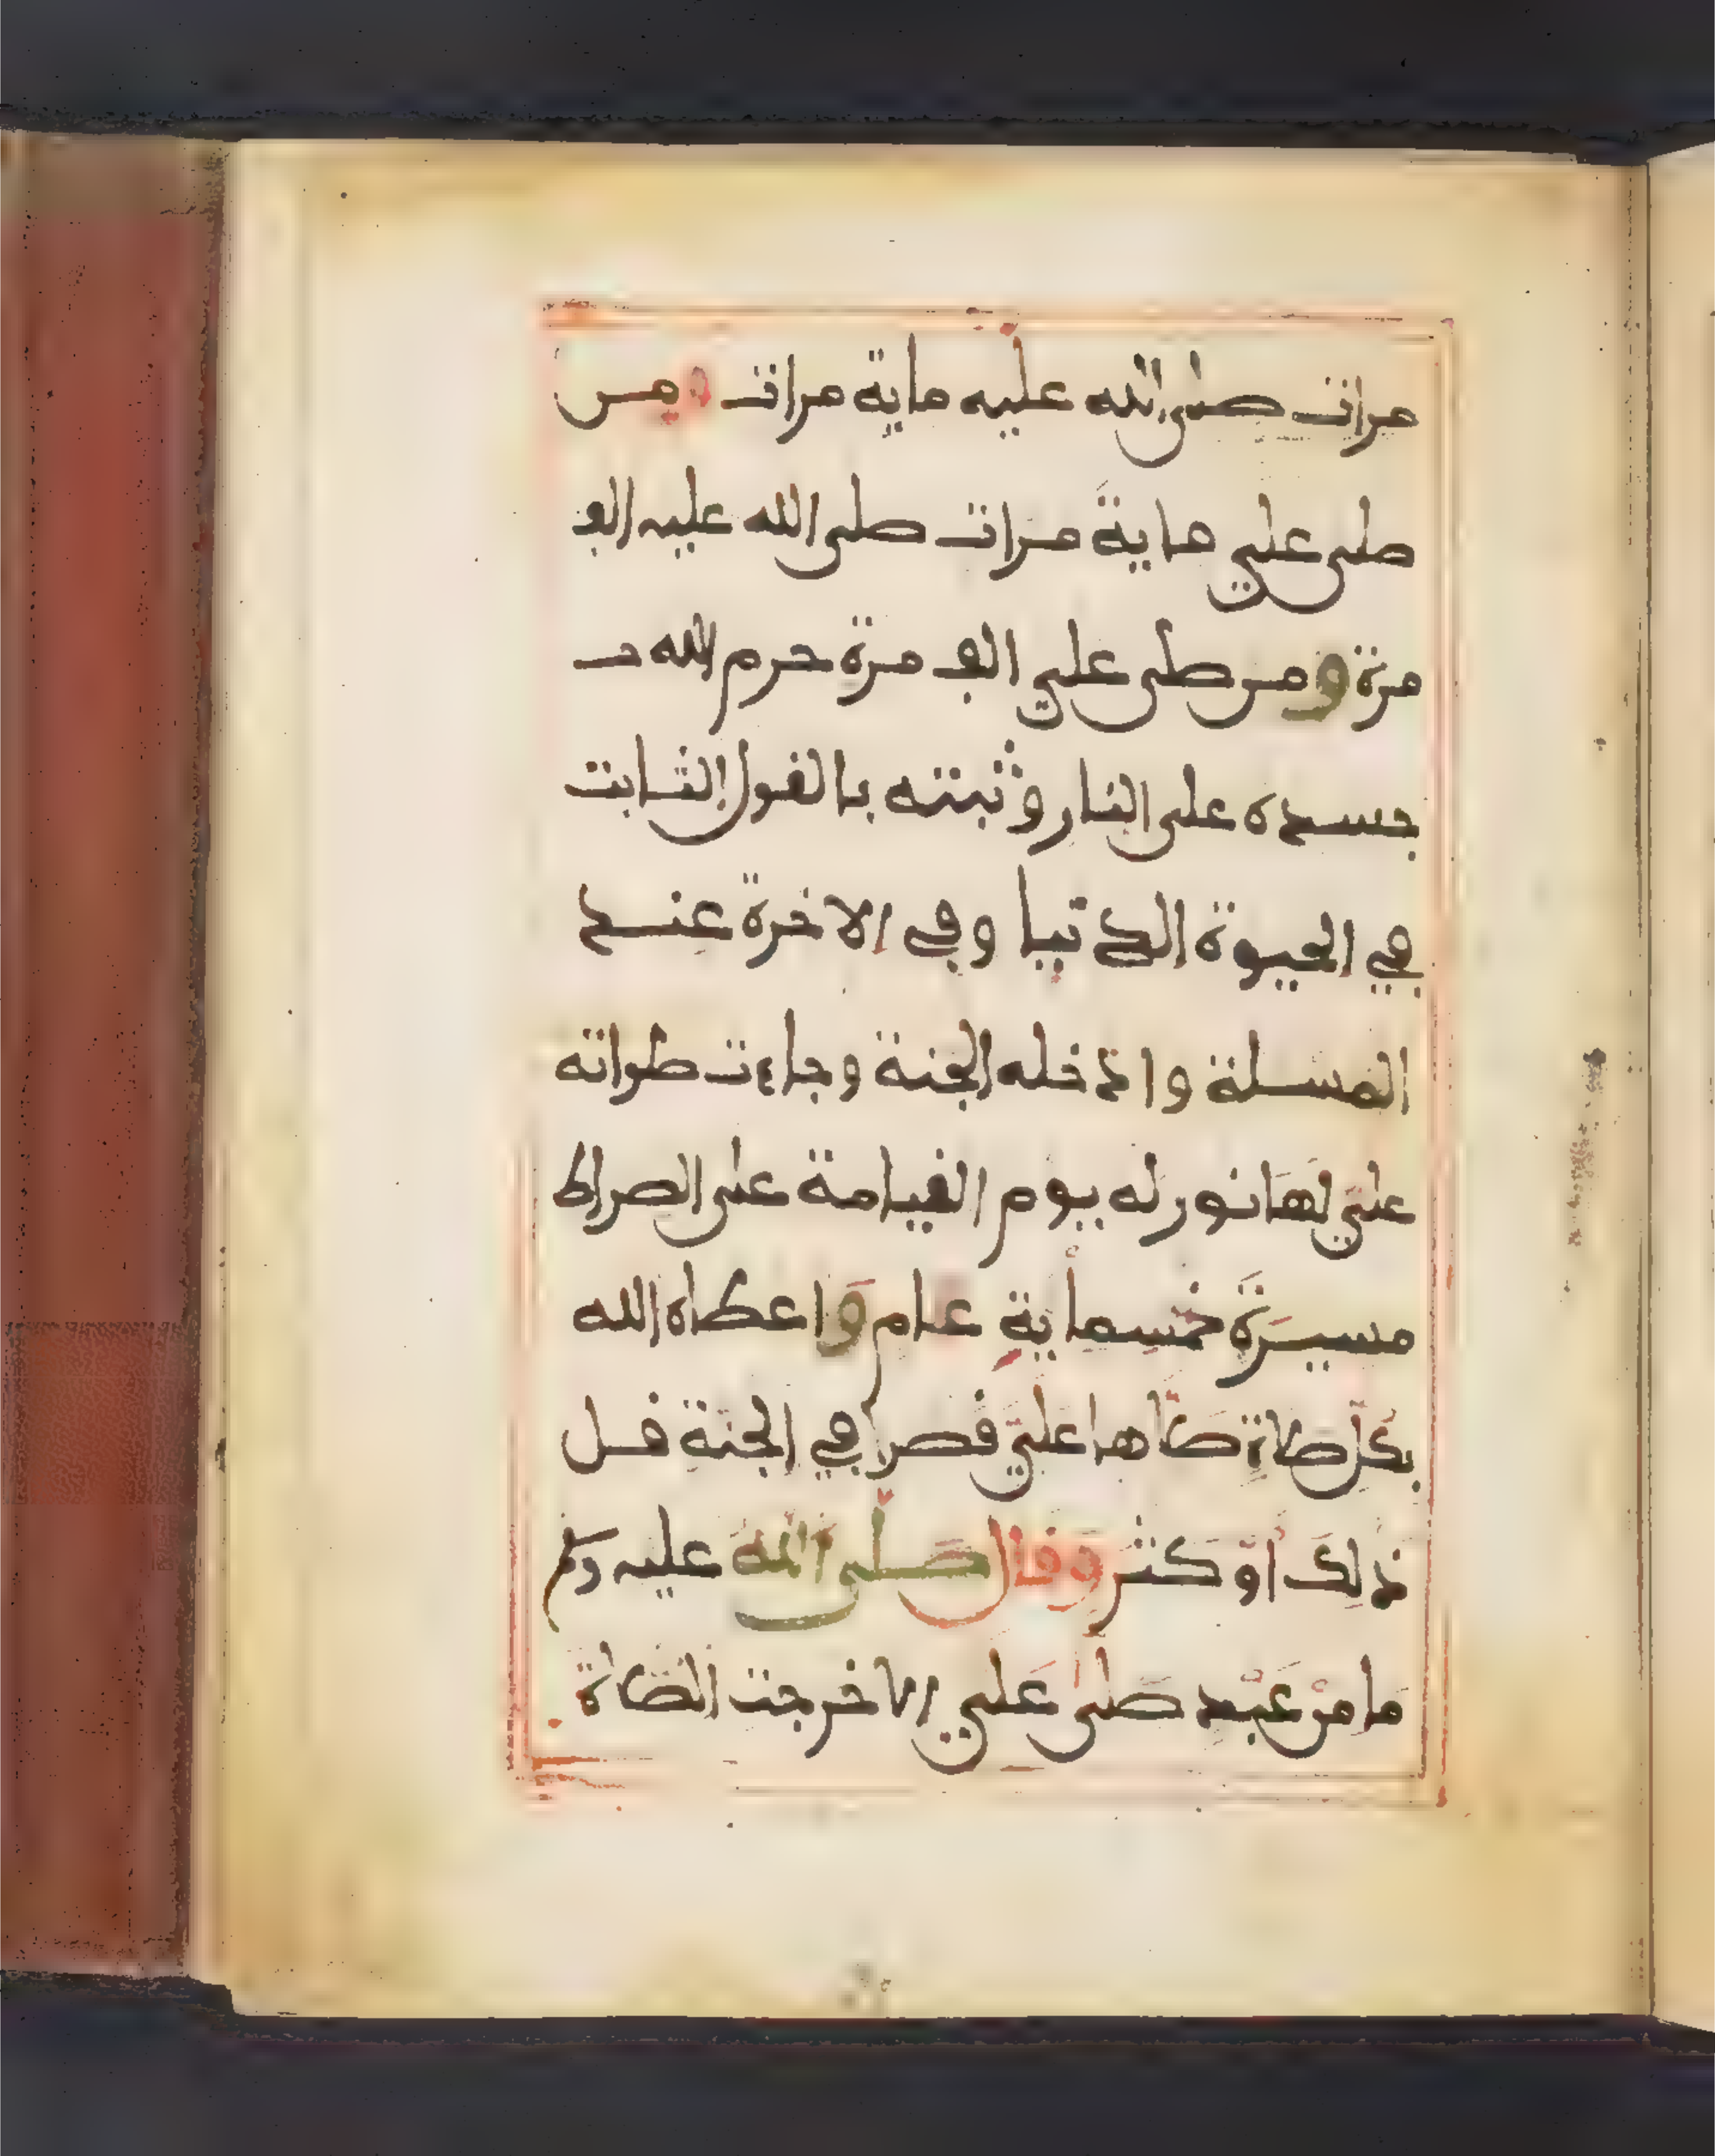 مرات صلى الله عليه ماية مرات ومن
صلى علي ماية مرات صلى الله عليه الف
مرة ومن صلى علي الف مرة حرم الله
جسده على النار وثبته بالقول الثابت
في الحيوة الدنيا وفي الاخرة عند
المسلة وادخله الجنة وجاءت صلواته
علي لها نور له يوم القيامة على الصراط
مسيرة خمسماية عام واعطاه الله
بكل صلاة صلاها علي قصرا في الجنة قل
ذلك أو كثر وقال صلى الله عليه وسلم
ما من عبد صلى علي الا خرجت الصلاة